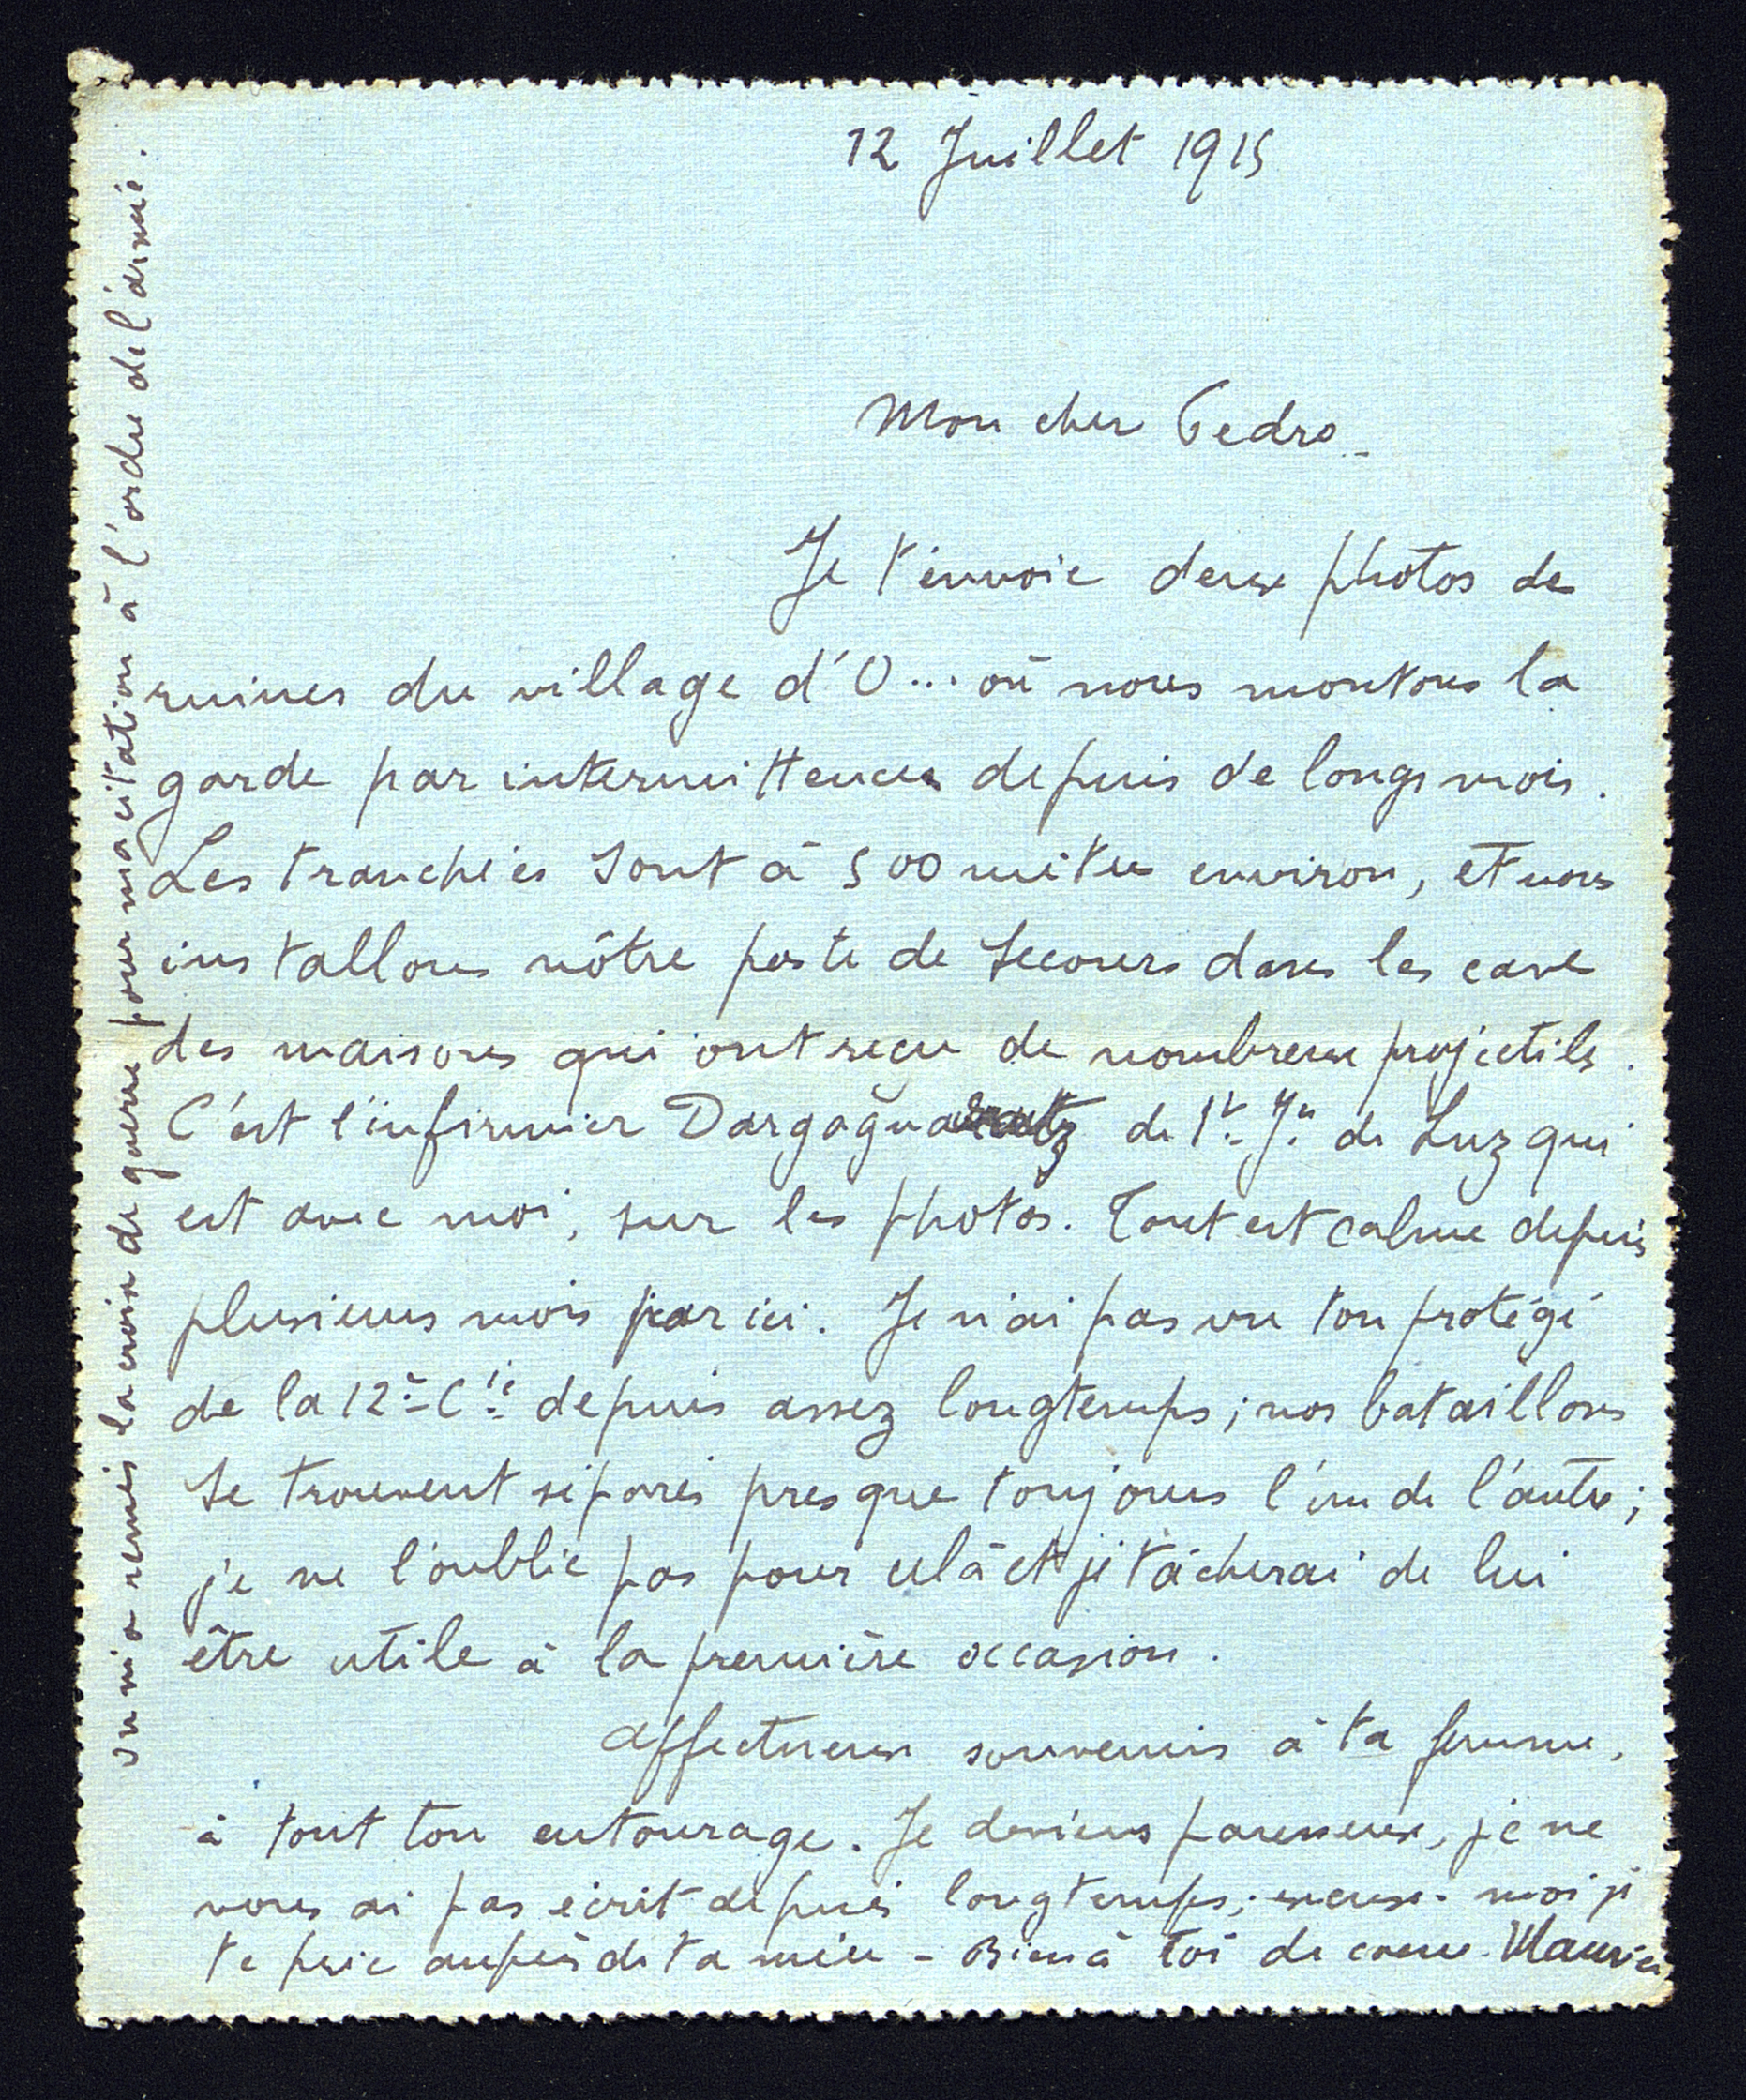 12 Juillet 1915
Mon cher Pedro_
Je t'envoie deux photos de
ruines du village d'O... où nous montons la
garde par intermittences depuis de longs mois.
Les tranchées sont à 500 mètres environ, et nous
installons nôtre poste de secours dans les caves
des maisons qui ont reçu de nombreux projectiles.
C'est l'infirmier de St. Jn. de Luz qui
est avec moi, sur les photos. Tout est calme depuis
plusieurs mois par ici. Je n'ai pas vu ton protégé
de la 12e Cie depuis assez longtemps; nos bataillons
se trouvent séparés presque toujours l'un de l'autre;
je ne l'oublie pas pour celà et je tâcherai de lui
être utile à la première occasion.
Affectueux souvenirs à ta femme,
à tout ton entourage. Je deviens paresseux, je ne
vous ai pas écrit depuis longtemps; excuse-moi je
te prie auprès de ta mère - Bien à toi de coeur. Maurice
On m'a remis la croix de guerre pour ma citation à l'ordre de l'armée.